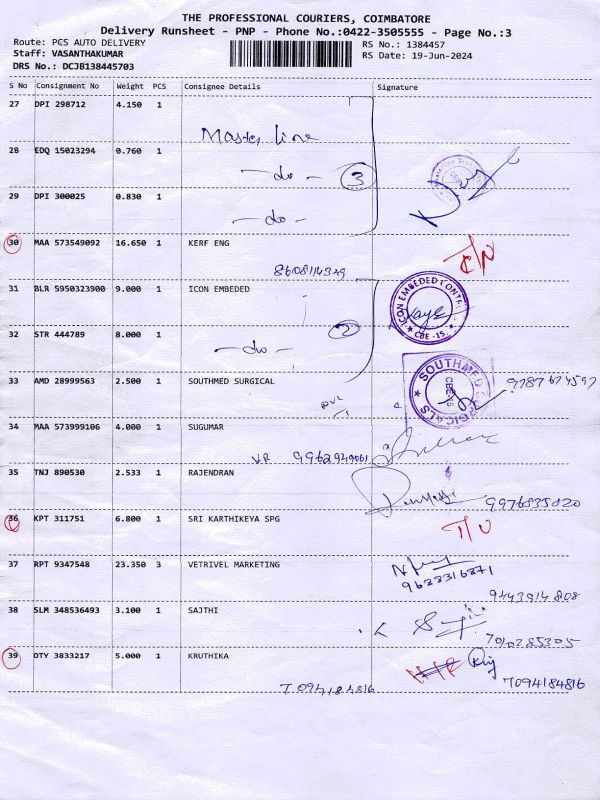 THE PROFESSIONAL COURIERS, COIMBATORE
Delivery Runsheet - PNP - Phone No.:0422-3505555 - Page No.:3
Route: PCS AUTO DELIVERY
RS No.: 1384457
Staff: VASANTHAKUMAR
RS Date: 19-Jun-2024
DRS No.: DCJB138445703
S No Consignment No Weight PCS Consignee Details Signature
27 DPI 298712 4.150 1
Master line
28 EDQ 15023294 0.760 1
- do - 3
29 DPI 300025 0.830 1
- do -
30 MAA 573549092 16.650 1 KERF ENG
8608114349
31 BLR 5950323900 9.000 1 ICON EMBEDED
ICON EMBEDED CONTR
CBE -15
2
32 STR 444789 8.000 1
- do -
33 AMD 28999563 2.500 1 SOUTHMED SURGICAL
SOUTHMED SURGICALS
CBE-15
9787674597
34 MAA 573999106 4.000 1 SUGUMAR
9962949061
35 TNJ 890530 2.533 1 RAJENDRAN
9976835820
36 KPT 311751 6.800 1 SRI KARTHIKEYA SPG
37 RPT 9347548 23.350 3 VETRIVEL MARKETING
9622316271
9443914808
38 SLM 348536493 3.100 1 SAJTHI
7010285305
39 DTY 3833217 5.000 1 KRUTHIKA
7094184816
7094184816